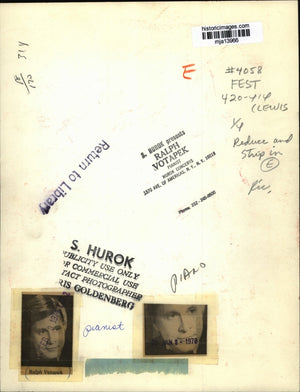 historicimages.com
mja13966
314
E
#4058
FEST
420-414
LEWIS
Reduce and
Strip in
Return to Library
S. HUROK presents
RALPH
VOTAPEK
PIANIST
HUROK CONCERTS
1370 AVE. OF AMERICAS, N. Y., N. Y. 10019
S. HUROK
PUBLICITY USE ONLY
FOR COMMERCIAL USE
CONTACT PHOTOGRAPHER
RIS GOLDENBERG
PIANO
pianist
Ralph Votapek
JAN 8 - 1970